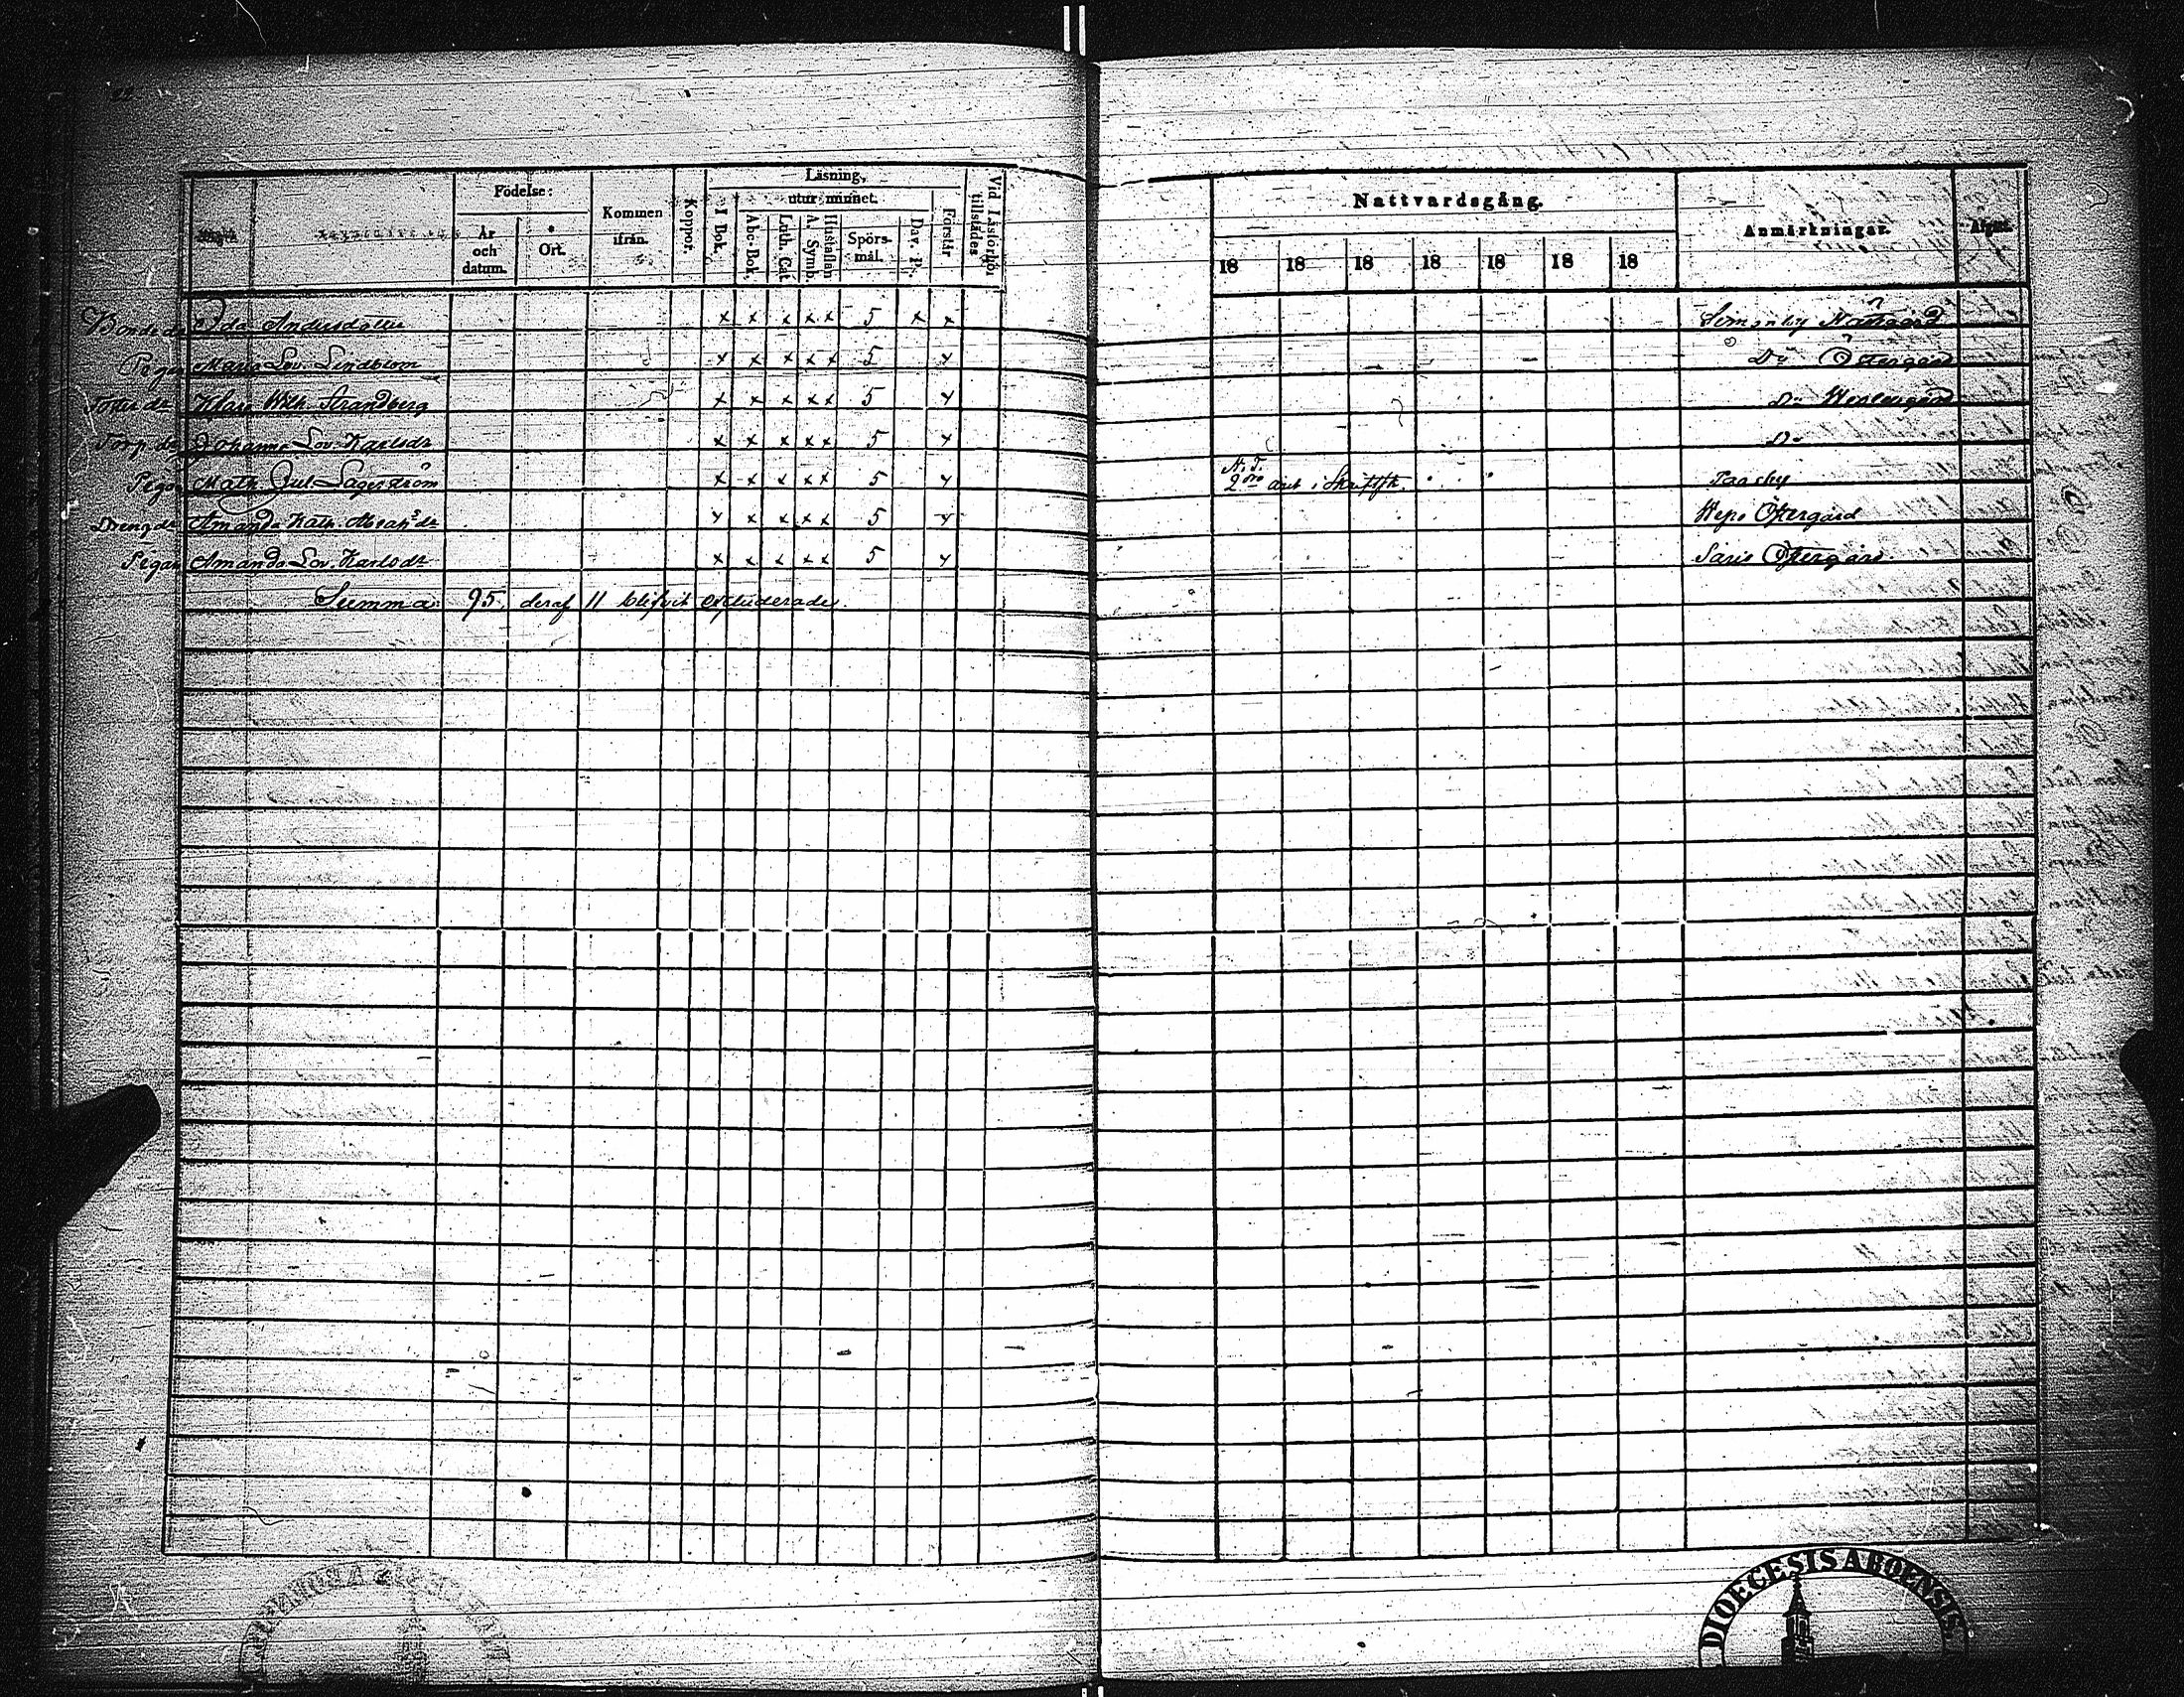 Födelse:
År och datum.
Ort.
Kommen ifrån.
Koppor.
Läsning,
I Bok.
utur minnet.
Abc-Bok.
Luth. Cat.
Hustaflan A. Symb.
Spörsmål.
Dav. Ps.
Förstår
Vid Läsförhör tillstädes
Nattvardsgång.
18 18 18 18 18 18 18
Anmärkningar.
Bonde dr Ida Andersdotter x x x x x 5 x x Simonby Nargård
Pigan Maria Lov. Lindblom x x x x x 5 x Do Östergård
Klara Wilh. Strandberg x x x x x 5 x Do Westergård
Torp. dr Johanna Lov. Karlsdr x x x x x 5 x Do
Pigan Math. Gul. Lagerström x x x x x 5 x N. T. 2 i Skriftsk. Paasby
Dreng dr Amanda Kath. x x x x x 5 x Wepo Östergård
Pigan Amanda Lov. Karlsdr x x x x x 5 x Saris Östergård.
Summa 95 deraf 11 blifvit exkluderade.
DIOECESIS ABOENSIS